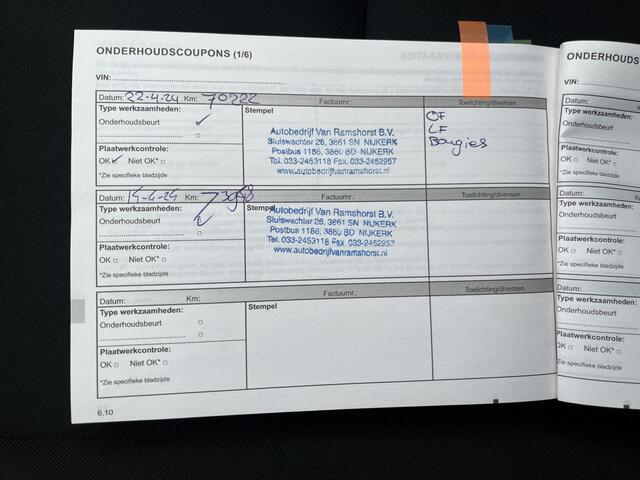 ONDERHOUDSCOUPONS (1/6)
ONDERHOUDS
VIN:
VIN:
Datum: 22-4-24 Km: 70222 Factuurnr.: Toelichting/diversen
Type werkzaamheden:
Onderhoudsbeurt
Stempel
Autobedrijf Van Ramshorst B.V.
Sluiswachter 26, 3861 SN NIJKERK
Postbus 1186, 3860 BD NIJKERK
Tel. 033-2453118 Fax. 033-2462957
www.autobedrijfvanramshorst.nl
OF
LF
Bougies
Plaatwerkcontrole:
OK Niet OK*
*Zie specifieke bladzijde
Datum: Km: Factuurnr.: Toelichting/diversen
Type werkzaamheden:
Onderhoudsbeurt
Stempel
Autobedrijf Van Ramshorst B.V.
Sluiswachter 26, 3861 SN NIJKERK
Postbus 1186, 3860 BD NIJKERK
Tel. 033-2453118 Fax. 033-2462957
www.autobedrijfvanramshorst.nl
Plaatwerkcontrole:
OK Niet OK*
*Zie specifieke bladzijde
Datum: Km: Factuurnr.: Toelichting/diversen
Type werkzaamheden:
Onderhoudsbeurt
Stempel
Plaatwerkcontrole:
OK Niet OK*
*Zie specifieke bladzijde
6.10
Datum:
Type werkzaamheden
Onderhoudsbeurt
Plaatwerkcontrole:
OK Niet OK*
*Zie specifieke bladz
Datum:
Type werkzaamhede
Onderhoudsbeurt
Plaatwerkcontrole:
OK Niet OK*
*Zie specifieke bla
Datum:
Type werkzaamhed
Onderhoudsbeurt
Plaatwerkcontrole
OK Niet OK*
*Zie specifieke bla